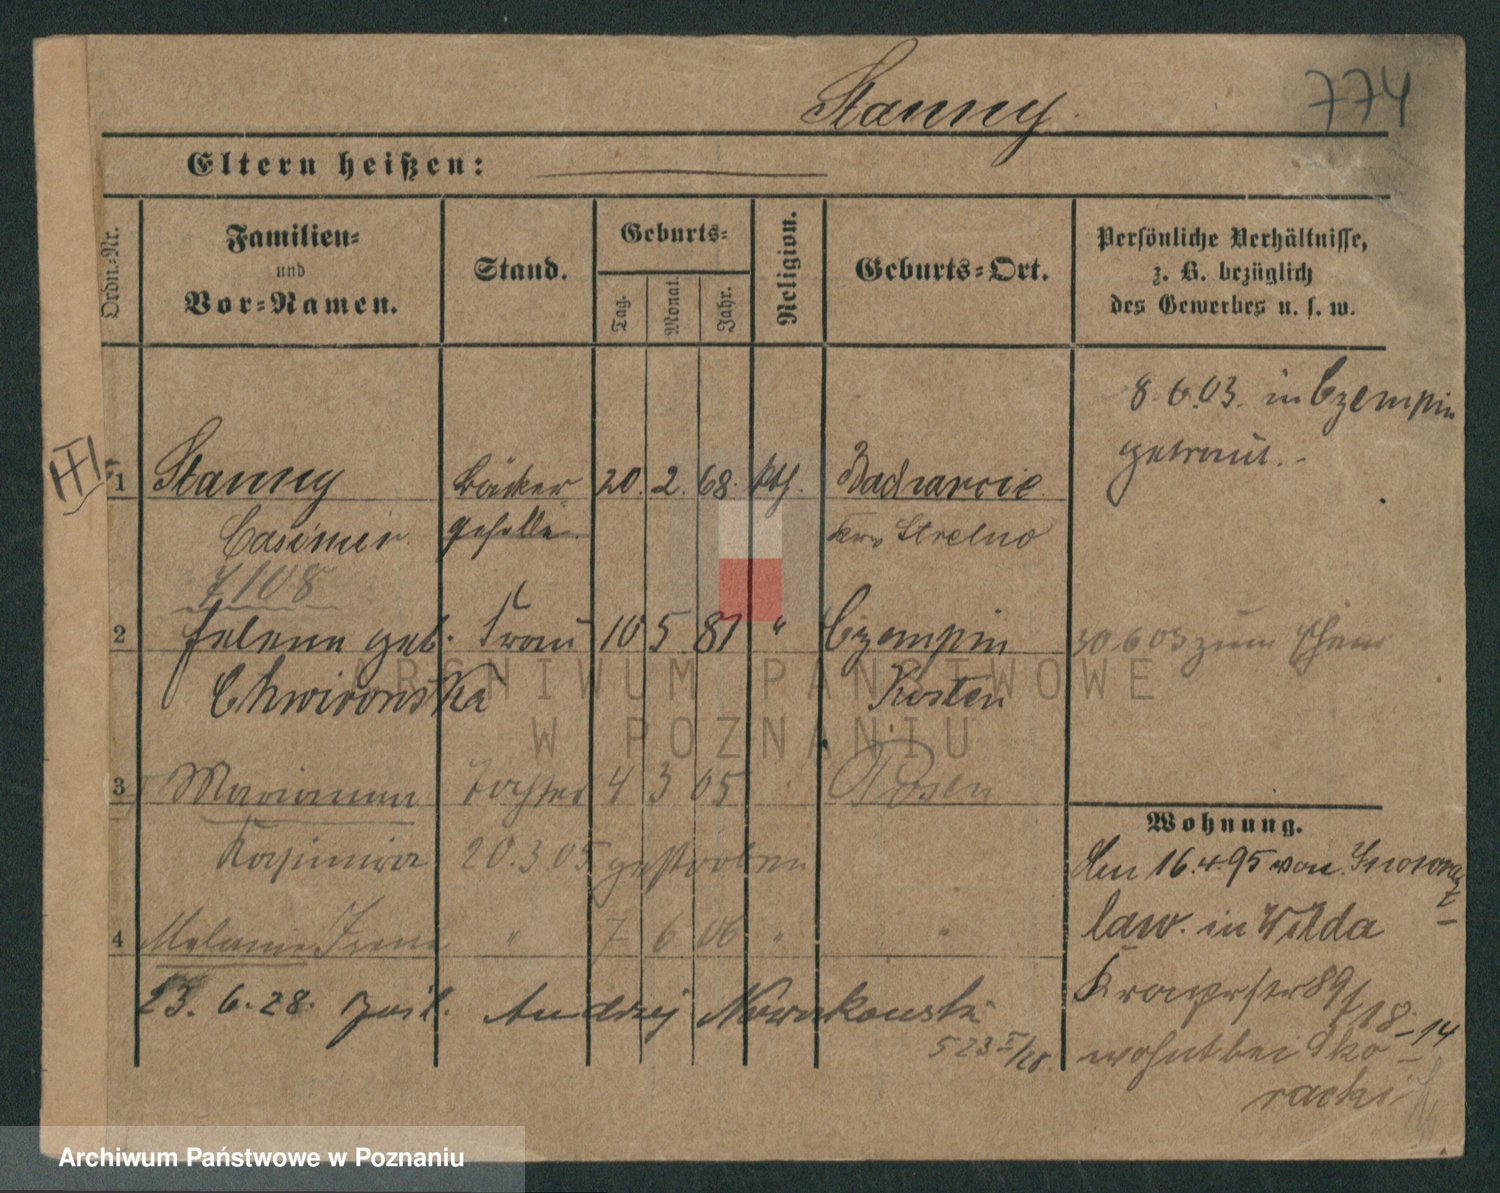 Stanny
774
Eltern heißen:
Ordn.-Nr.
Familien-
und
Vor-Namen.
Stand.
Geburts-
Tag.
Monat.
Jahr.
Religion.
Geburts-Ort.
Persönliche Verhältnisse,
z. B. bezüglich
des Gewerbes u. s. w.
8.6.03. in Czempin
getraut.
1 Stanny Bäcker 20. 2. 68. kth.
Casimir geselle Strelno
7108
2 Helene geb. Frau 10 5 81 " Czempin 30.6.03 zum
Chwirowska Kosten
ARCHIWUM PAŃSTWOWE
W POZNANIU
3 Marianna Tochter 4 3 05 Posen
Kasimira 20.3.05 gestorben
4 Melanie Irene " 7 6 06 " "
23. 6. 28. Andrzej Nowakowski
523 I/28.
Wohnung.
16.4.95 von Inowraz
law. in Wilda
Kronprstr 89
/18-14
wohnt bei Sko
racki
Archiwum Państwowe w Poznaniu